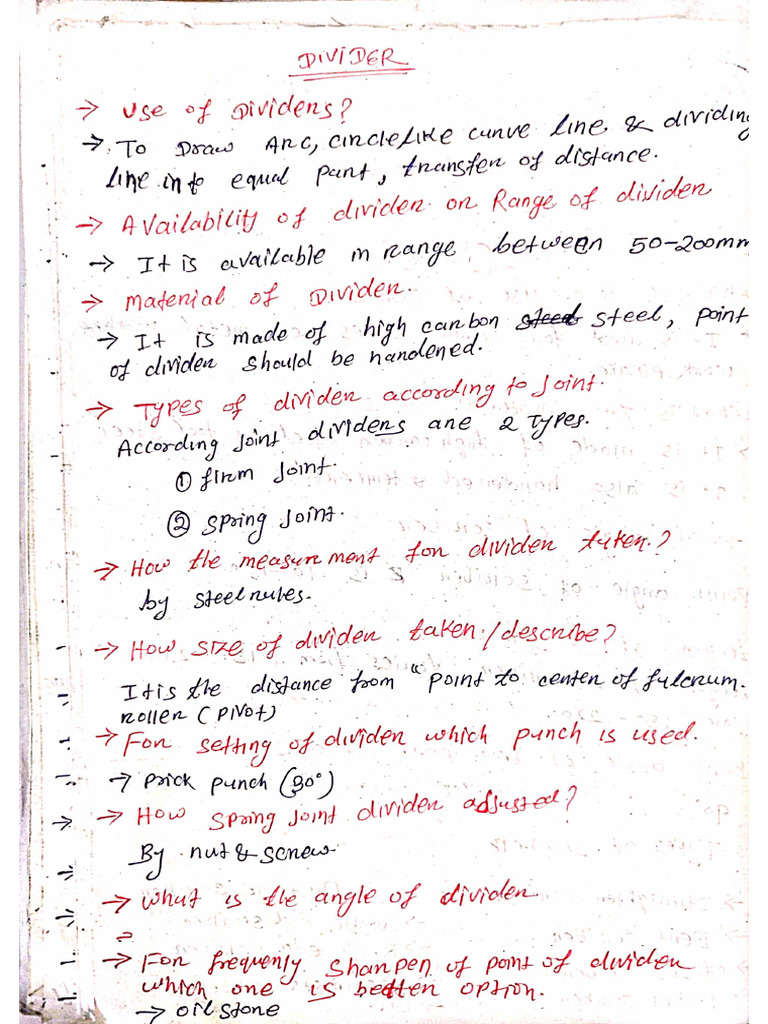 DIVIDER
→ Use of Dividers?
→ To Draw Arc, circle like curve line & dividing
line into equal part, transfer of distance.
→ Availability of divider or Range of divider
→ It is available in range between 50-200mm
→ Material of Divider.
→ It is made of high carbon steel, point
of divider should be hardened.
→ Types of divider according to Joint.
According joint dividers are 2 Types.
① firm Joint.
② spring Joint.
→ How the measurement for divider taken?
by steel rules.
→ How size of divider taken/describe?
It is the distance from "point to center of fulcrum.
roller (Pivot)
→ For setting of divider which punch is used.
→ Prick punch (30°)
→ How spring joint divider adjusted?
By nut & screw
→ What is the angle of divider
?
→ For frequenly sharpen of point of divider
which one is better option.
→ oil stone